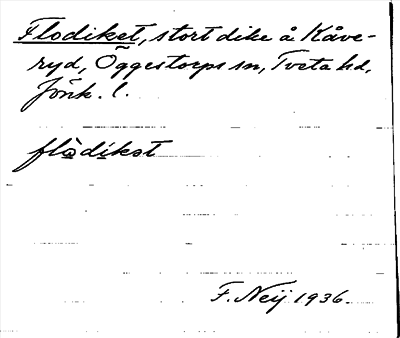 Flodiket, stort dike å Kåve-
ryd, Öggestorps sn, Tveta hd,
Jönk. l.
flò̱di̱kət
F. Neij 1936.